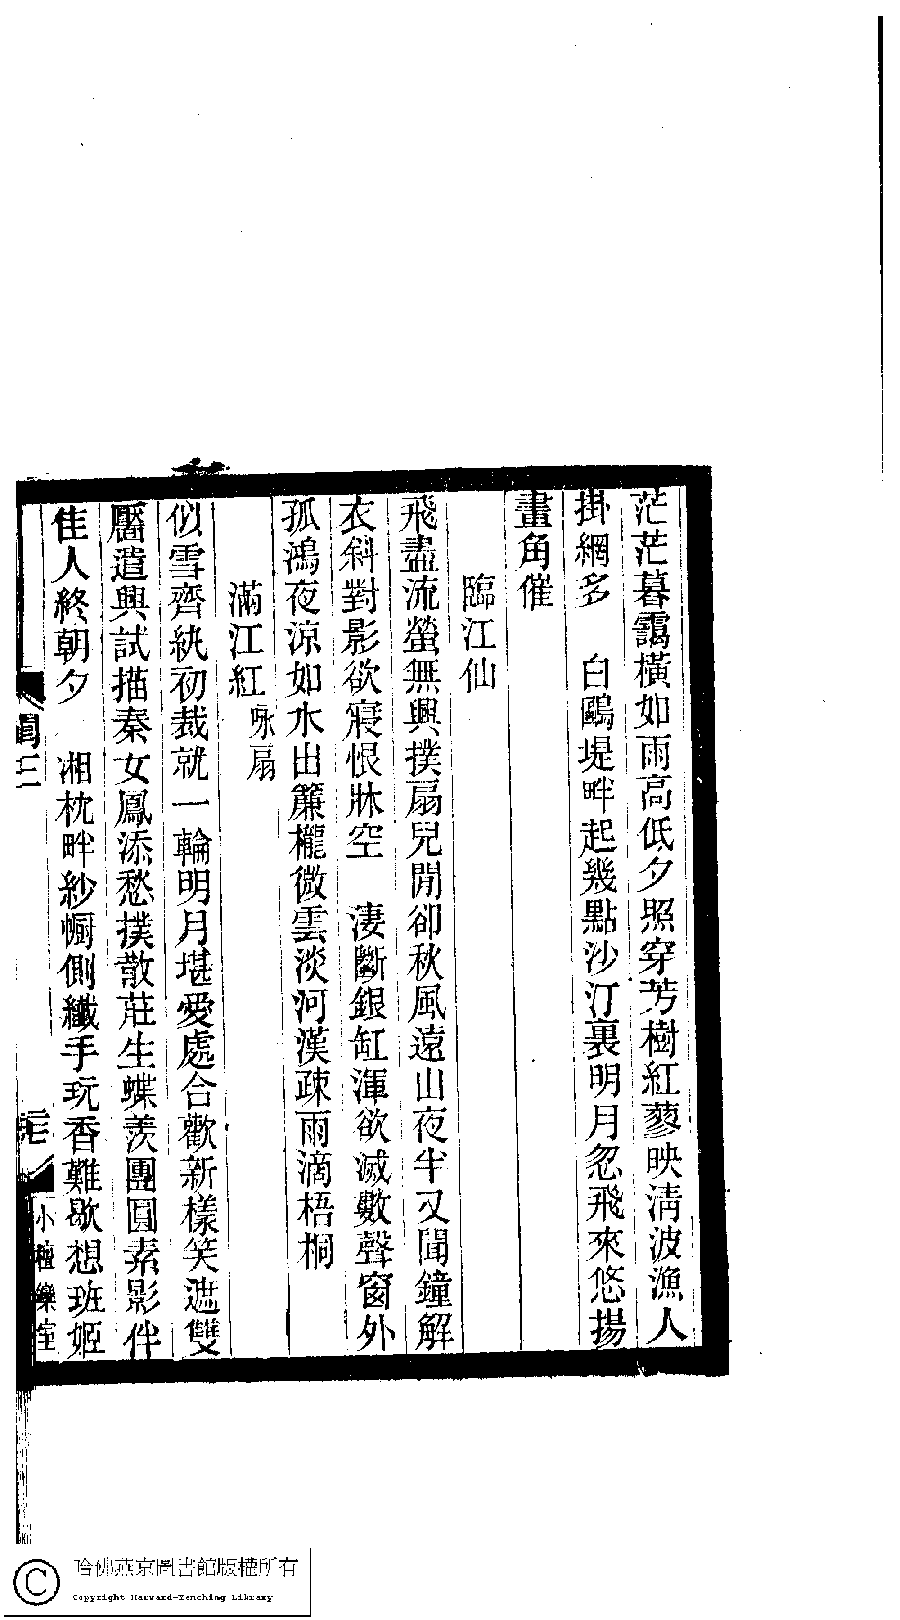 茫茫暮靄橫如雨高低夕照穿芳樹紅蓼映淸波漁人
掛網多　白鷗堤畔起幾點沙汀裏明月忽飛來悠揚
畫角催
臨江仙
飛盡流螢無興撲扇兒閒卻秋風遠山夜半又聞鐘解
衣斜對影欲寢恨牀空　淒斷銀缸渾欲滅數聲窗外
孤鴻夜涼如水出簾櫳微雲淡河漢疎雨滴梧桐
滿江紅 咏扇
似雪齊紈初裁就一輪明月堪愛處合歡新樣笑遮雙
靨遣興試描秦女鳳添愁撲散莊生蝶羨團圓素影伴
佳人終朝夕　湘枕畔紗幮側纖手玩香難歇想班姬
小檀欒室
哈佛燕京圖書館版權所有
Copyright Harvard-Yenching Library